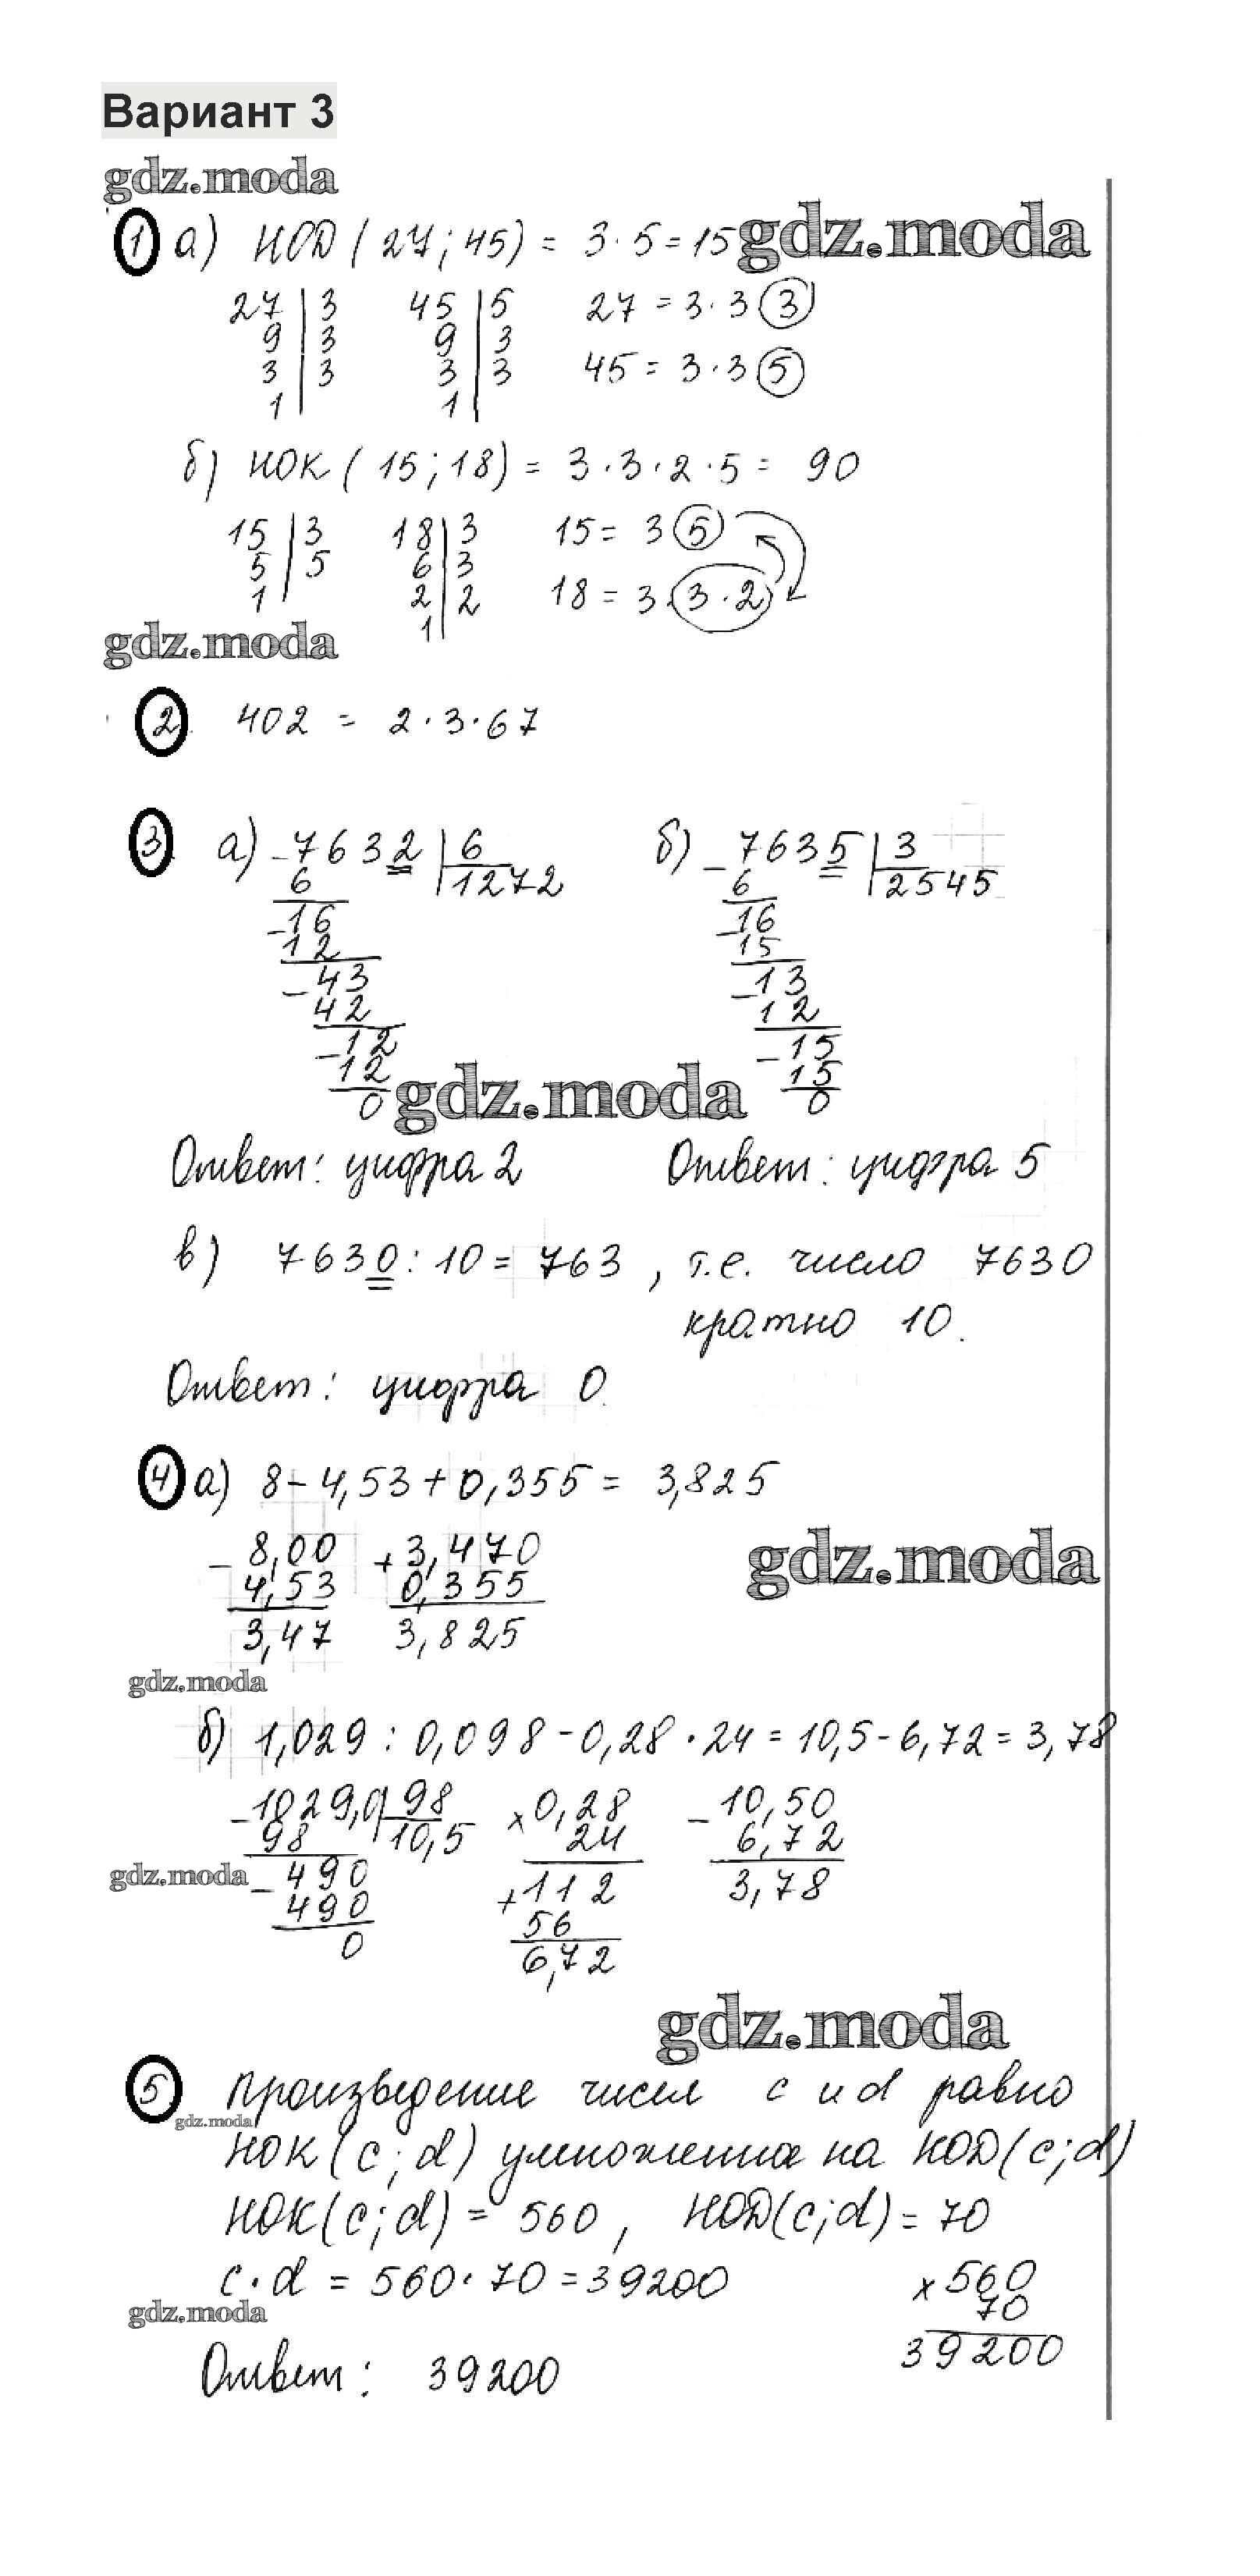 Вариант 3
gdz.moda
1 а) НОД (27; 45) = 3·5=15
gdz.moda
27 | 3 45 | 5 27 = 3·3 3
9 | 3 9 | 3
3 | 3 3 | 3 45 = 3·3 5
1 | 1 |
б) НОК (15; 18) = 3·3·2·5 = 90
15 | 3 18 | 3 15 = 3 5
5 | 5 6 | 3
1 | 2 | 2 18 = 3·3·2
1 |
gdz.moda
2 402 = 2·3·67
3 а) -7632 | 6 б) -7635 | 3
6 | 1272 6 | 2545
-16 -16
12 15
-43 -13
42 12
-12 -15
12 15
0 0
gdz.moda
Ответ: цифра 2 Ответ: цифра 5
в) 7630 : 10 = 763, т.е. число 7630
кратно 10.
Ответ: цифра 0.
4 а) 8-4,53+0,355 = 3,825
-8,00 +3,470
4,53 0,355
3,47 3,825
gdz.moda
gdz.moda
б) 1,029 : 0,098 - 0,28 · 24 = 10,5 - 6,72 = 3,78
-1029,0 | 98 ×0,28 -10,50
98 | 10,5 24 6,72
-490 +112 3,78
490 56
0 6,72
gdz.moda
gdz.moda
5 Произведение чисел c и d равно
gdz.moda
НОК (c; d) умножения на НОД (c; d)
НОК (c; d) = 560, НОД (c; d) = 70
c·d = 560·70 = 39200 ×560
70
39200
gdz.moda
Ответ: 39200